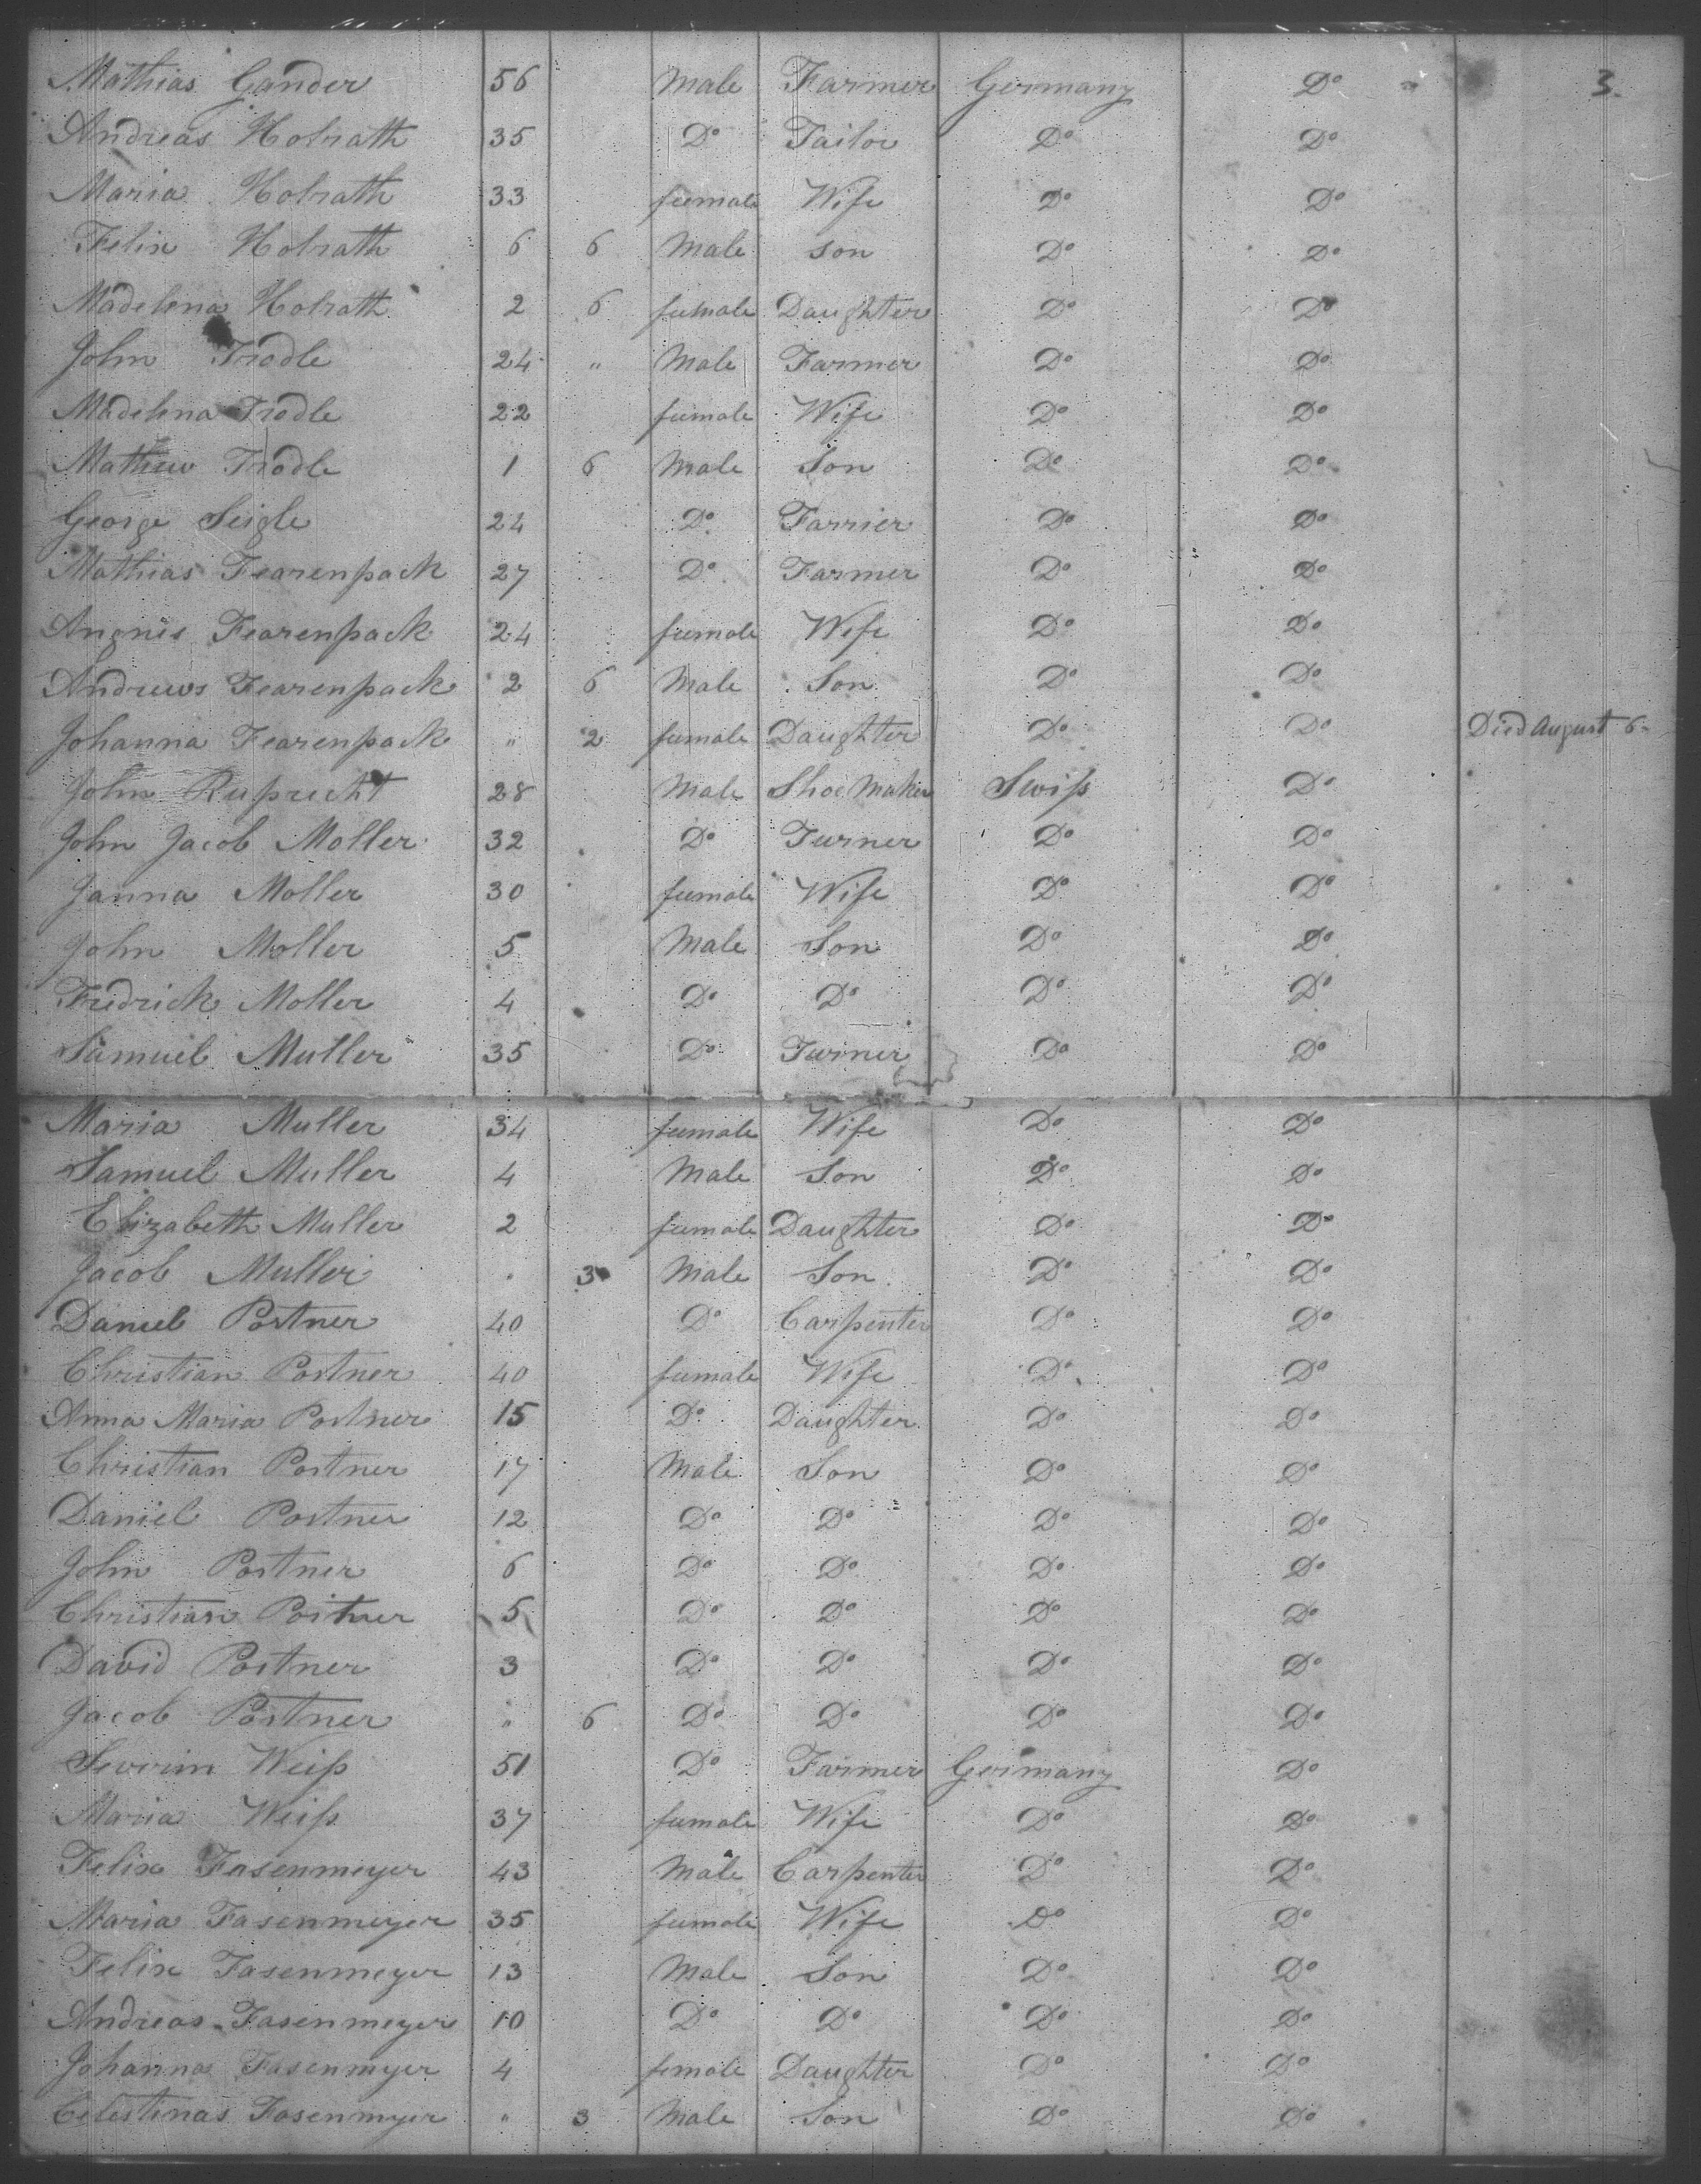 Mathias Gander 56 Male Farmer Germany Do 3.
Andreas Holrath 35 Do Tailor Do Do
Maria Holrath 33 female Wife Do Do
Felix Holrath 6 6 Male son Do Do
Madelena Holrath 2 6 female Daughter Do Do
John Trodle 24 " Male Farmer Do Do
Madelena Trodle 22 female Wife Do Do
Mathew Trodle 1 6 Male Son Do Do
George Seigle 24 Do Farrier Do Do
Mathias Fearenpack 27 Do Farmer Do Do
Angnis Fearenpack 24 female Wife Do Do
Andrews Fearenpack 2 6 Male Son Do Do
Johanna Fearenpack " 2 female Daughter Do Do Died August 6
John Ruprecht 28 Male Shoe Maker Swiss Do
John Jacob Moller 32 Do Turner Do Do
Janna Moller 30 female Wife Do Do
John Moller 5 Male Son Do Do
Fredrick Moller 4 Do Do Do Do
Samuel Muller 35 Do Turner Do Do
Maria Muller 34 female Wife Do Do
Samuel Muller 4 Male Son Do Do
Elizabeth Muller 2 female Daughter Do Do
Jacob Muller " 3 Male Son Do Do
Daniel Portner 40 Do Carpenter Do Do
Christian Portner 40 female Wife Do Do
Anna Maria Portner 15 Do Daughter Do Do
Christian Portner 17 Male Son Do Do
Daniel Portner 12 Do Do Do Do
John Portner 6 Do Do Do Do
Christian Portner 5 Do Do Do Do
David Portner 3 Do Do Do Do
Jacob Portner " 6 Do Do Do Do
Severin Weiss 51 Do Farmer Germany Do
Maria Weiss 37 female Wife Do Do
Felix Fasenmeyer 43 Male Carpenter Do Do
Maria Fasenmeyer 35 female Wife Do Do
Felix Fasenmeyer 13 Male Son Do Do
Andreas Fasenmeyer 10 Do Do Do Do
Johanna Fasenmyer 4 female Daughter Do Do
Celestinas Fasenmyer " 3 Male Son Do Do